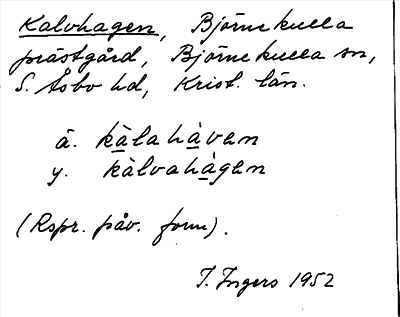 Kalvhagen, Björnekulla
prästgård, Björnekulla sn,
S. Åsbo hd, Krist. län.
ä. kàlahàven
y. kàlvahàgen
(Rspr. påv. form).
I. Ingers 1952